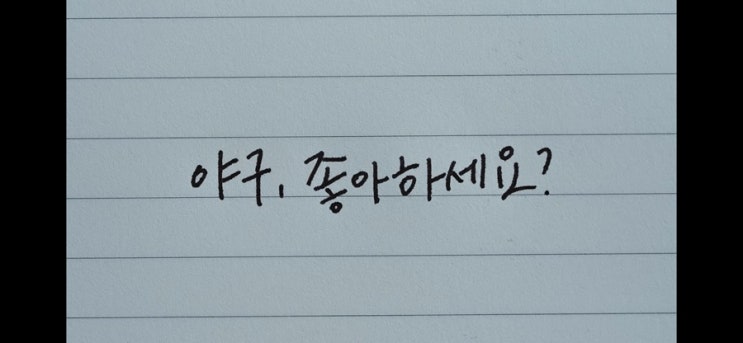 야구, 좋아하세요?